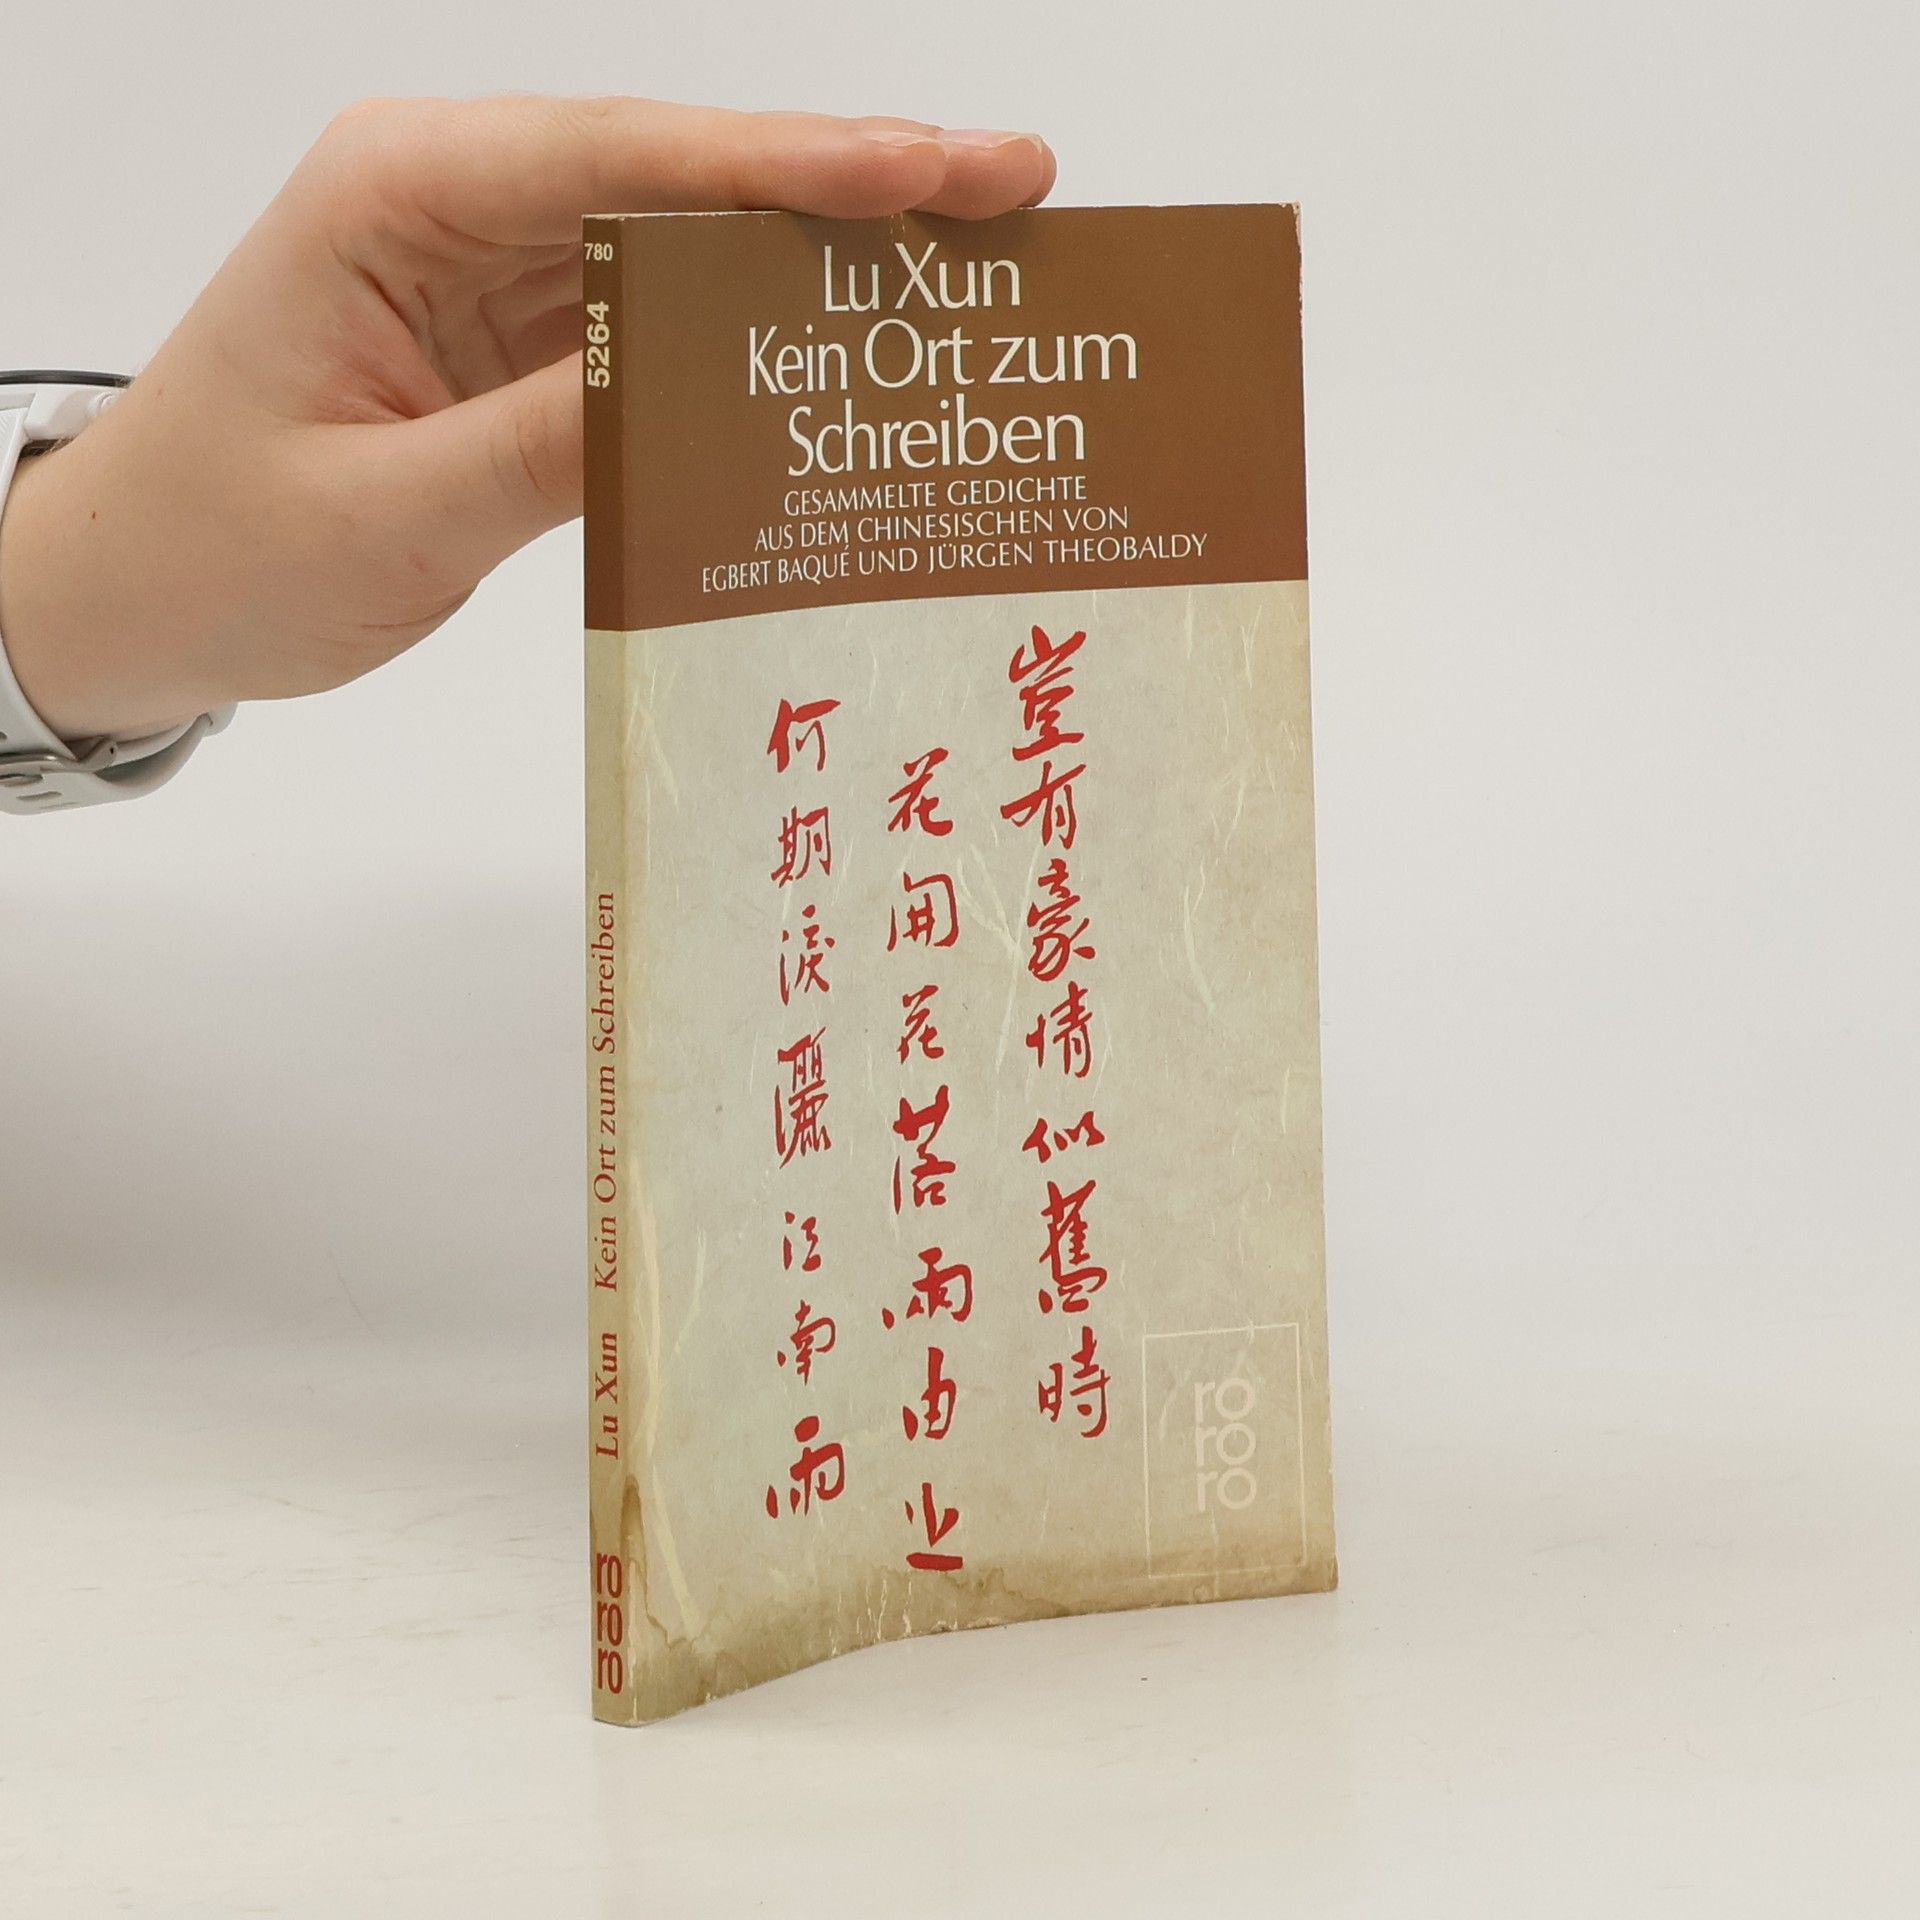 Lu Xun
Kein Ort zum
Schreiben
GESAMMELTE GEDICHTE
AUS DEM CHINESISCHEN VON
EGBERT BAQUÉ UND JÜRGEN THEOBALDY
豈有豪情似舊時
花開花落兩由之
何期淚灑江南雨
ro
ro
ro
780
5264
Lu Xun Kein Ort zum Schreiben
ro
ro
ro